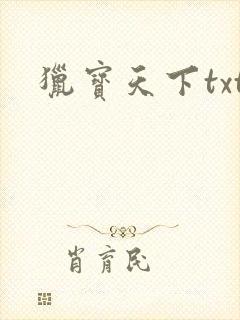 獵寶天下txt
肖育民